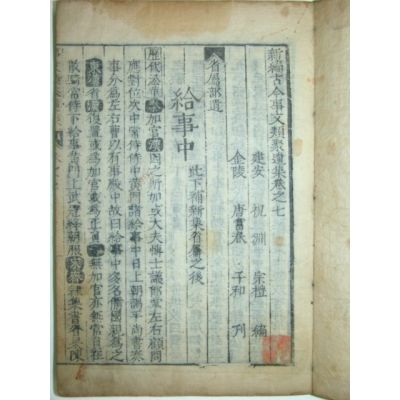 新編古今事文類聚遺集卷之七
建安 祝淵 宗禮 編
金陵 唐富春 子和 刊
省屬部遺
給事中 此下補新集省屬之後
歷代沿革秦加官漢因之所加或大夫博士議郎掌左右顧問
應對位次中常侍侍中黃門諸給事中日上朝謁平尚書奏
事分為左右曹以有事殿中故曰給事中多名儒國親為之
東漢省魏復置或為加官或為正員晉無加官亦無常員在
散騎常侍下給事黃門上武冠絳朝服